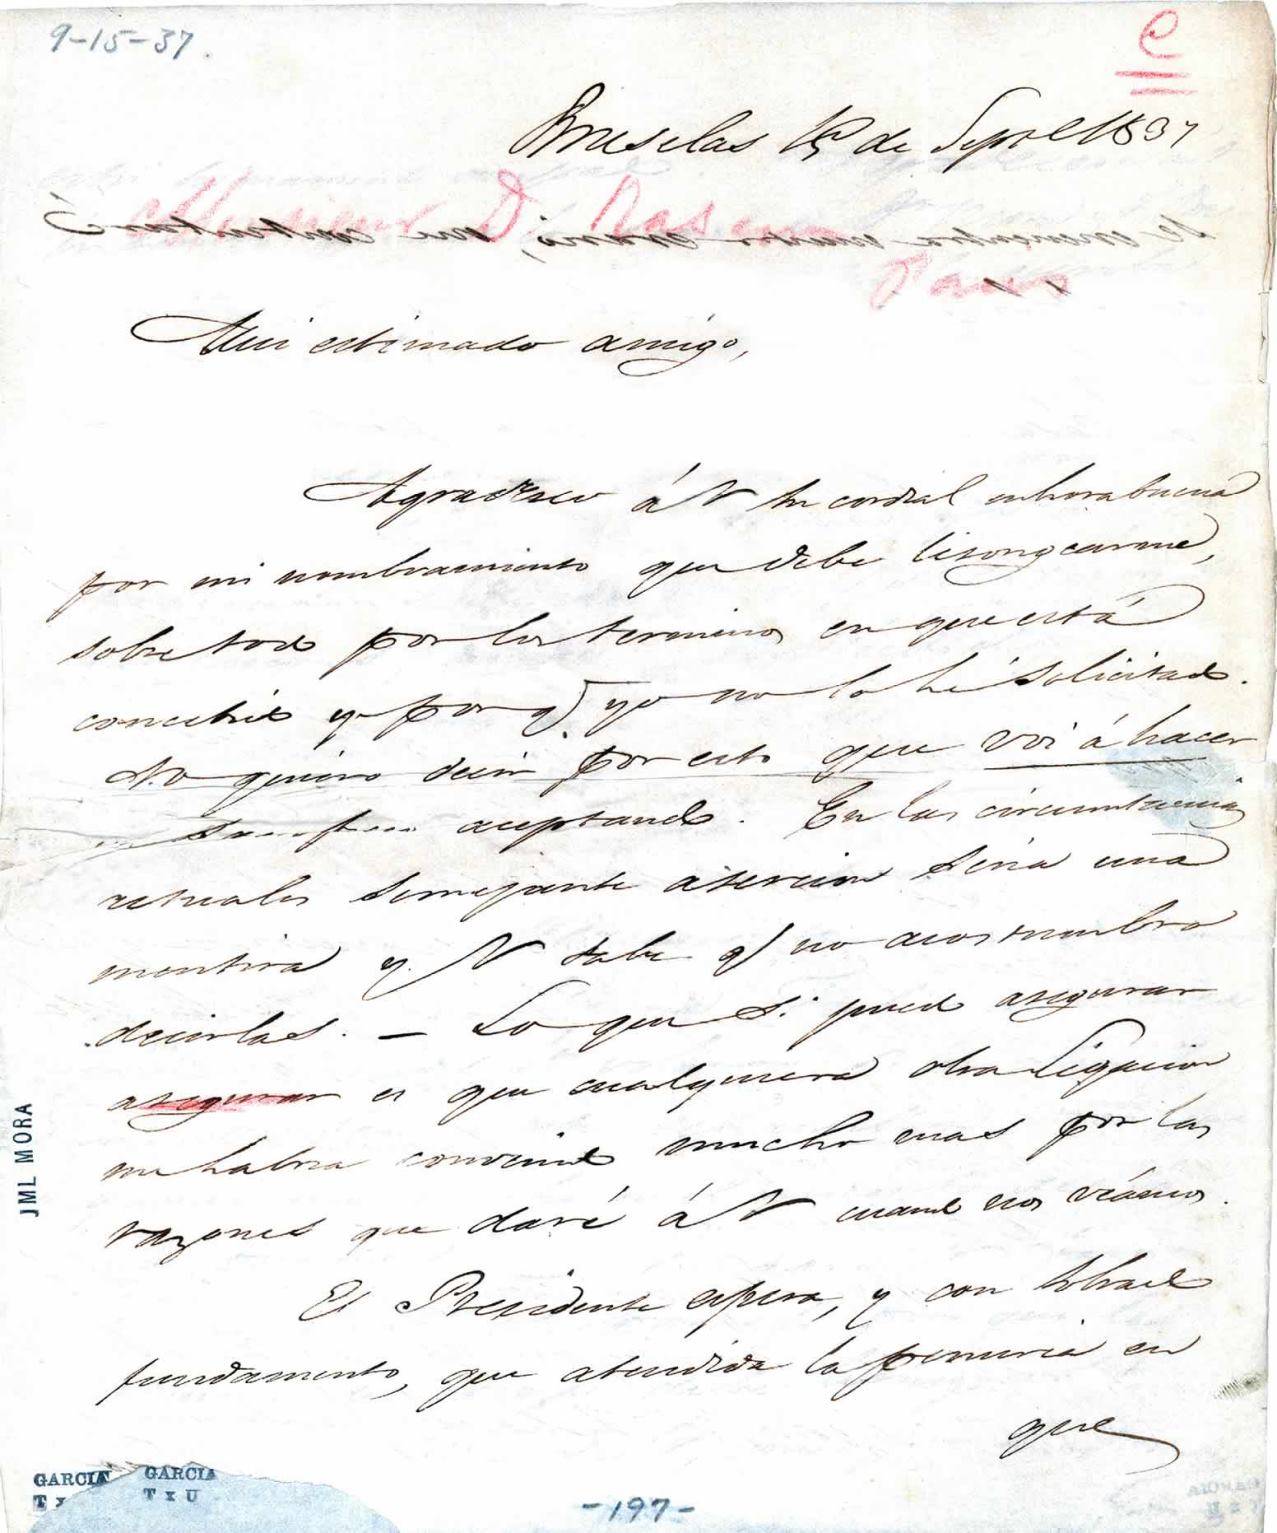 9-15-37.
C
Bruselas 15 de Sepre 1837
Monsieur D.
Paris
Mui estimado amigo,
Agradezco á V su cordial enhorabuena
por mi nombramiento que debe lisongearme,
sobre todo por los terminos en que está
concebido y por q. yo no lo hé solicitado.
No quiero decir por esto que voi á hacer
aceptando. En las circunstancias
actuales semejante asercion seria una
mentira y V sabe q no acostumbro
decirlas. — Lo que si puedo asegurar
asegurar es que cualquiera otra Legacion
me habria convenido mucho mas por las
razones que daré á V cuando nos veámos.
El Presidente espera, y con sobrado
fundamento, que atendida la penuria en
que
JML MORA
GARCIA GARCIA
TxU
-197-